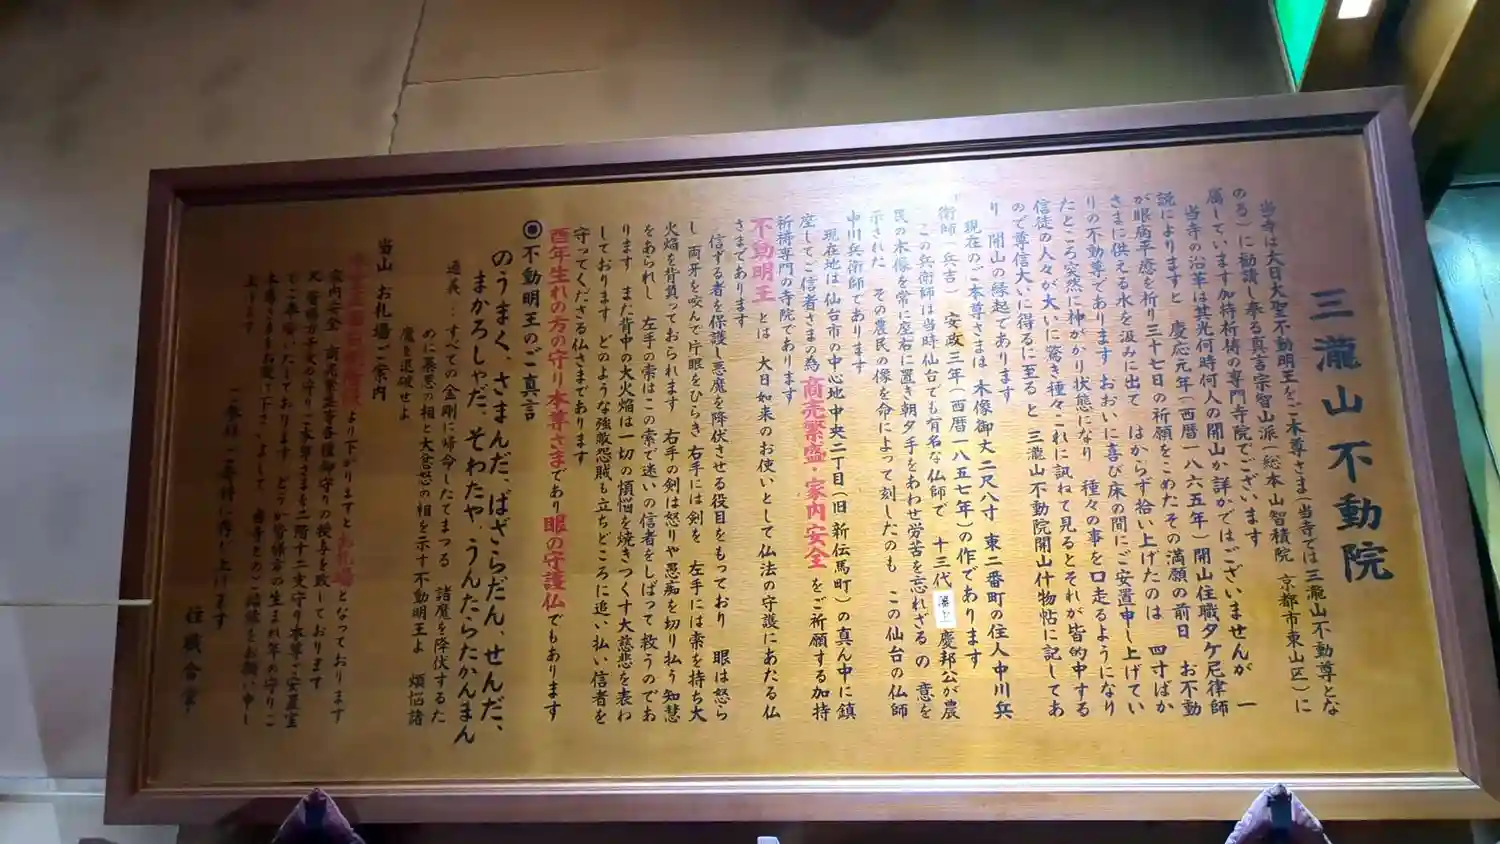 三瀧山不動院
当寺は大日大聖不動明王をご本尊さま(当寺では三瀧山不動尊とな
のる)に勧請し奉る真言宗智山派(総本山智積院 京都市東山区)に
属しています加持祈祷の専門寺院でございます
当寺の沿革は其光何時何人の開山か詳かではございませんが 一
説によりますと 慶応元年(西暦一八六五年)開山住職タケ尼律師
が眼病平癒を祈り三十七日の祈願をこめたその満願の前日 お不動
さまに供える水を汲みに出て はからず拾い上げたのは 四寸ばか
りの不動尊であります おおいに喜び床の間にご安置申し上げてい
たところ突然に神がかり状態になり 種々の事を口走るようになり
信徒の人々が大いに驚き種々これに訊ねて見るとそれが皆的中する
ので尊信大いに得るに至ると 三瀧山不動院開山什物帖に記してあ
り 開山の縁起であります
現在のご本尊さまは 木像御丈二尺八寸 東二番町の住人中川兵
衛師(兵吉) 安政三年(西暦一八五七年)の作であります
この兵衛師は当時仙台でも有名な仏師で 十三代藩主慶邦公が農
民の木像を常に座右に置き朝夕手をあわせ労苦を忘れざるの意を
示された その農民の像を命によって刻したのも この仙台の仏師
中川兵衛師であります
現在地は仙台市の中心地中央二丁目(旧新伝馬町)の真ん中に鎮
座してご信者さまの為 商売繁盛・家内安全 をご祈願する加持
祈祷専門の寺院であります
不動明王 とは 大日如来のお使いとして仏法の守護にあたる仏
さまであります
信ずる者を保護し悪魔を降伏させる役目をもっており 眼は怒ら
し 両牙を咬んで片眼をひらき右手には剣を 左手には索を持ち大
火焔を背負っておられます 右手の剣は怒りや愚痴を切り払う知慧
をあらわし 左手の索はこの索で迷いの信者をしばって救うのであ
ります また背中の大火焔は一切の煩悩を焼きつくす大慈悲を表わ
しております どのような強敵怨賊も立ちどころに追い払い信者を
守ってくださる仏さまであります
酉年生れの方の守り本尊さまであり眼の守護仏でもあります
◉不動明王のご真言
のうまく、さまんだ、ばざらだん、せんだ、
まかろしゃだ、そわたや、うんたらたかんまん
通義…すべての金剛に帰命したてまつる 諸魔を降伏するた
めに暴悪の相と大忿怒の相を示す不動明王よ 煩悩諸
魔を退破せよ
当山 お札場ご案内
より下がりますとお札場となっております
家内安全 商売繁盛等各種御守りの授与を致しております
又 皆様方干支の守りご本尊さまを二階十二支守り本尊ご安置室
にご奉祀いたしております どうか皆様方の生まれ年の守りご
本尊さまをお祀り下さいまして 当寺とのご縁をお願い申し
上げます
住職合掌